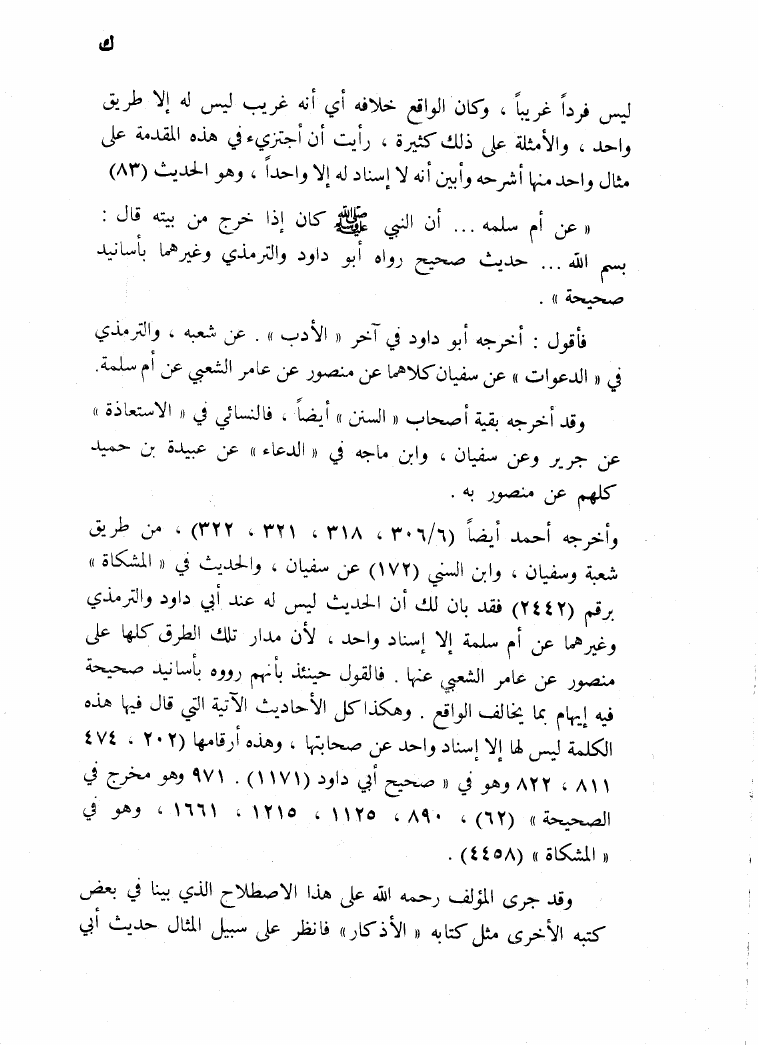 ك
ليس فرداً غريباً ، وكان الواقع خلافه أي أنه غريب ليس له إلا طريق
واحد ، والأمثلة على ذلك كثيرة ، رأيت أن أجتزيء في هذه المقدمة على
مثال واحد منها أشرحه وأبين أنه لا إسناد له إلا واحداً ، وهو الحديث (٨٣)
« عن أم سلمه ... أن النبي ﷺ كان إذا خرج من بيته قال :
بسم الله ... حديث صحيح رواه أبو داود والترمذي وغيرهما بأسانيد
صحيحة » .
فأقول : أخرجه أبو داود في آخر « الأدب » . عن شعبه ، والترمذي
في « الدعوات » عن سفيان كلاهما عن منصور عن عامر الشعبي عن أم سلمة.
وقد أخرجه بقية أصحاب « السنن » أيضاً ، فالنسائي في « الاستعاذة »
عن جرير وعن سفيان ، وابن ماجه في « الدعاء » عن عبيدة بن حميد
كلهم عن منصور به .
وأخرجه أحمد أيضاً (٣٠٦/٦ ، ٣١٨ ، ٣٢١ ، ٣٢٢) ، من طريق
شعبة وسفيان ، وابن السني (١٧٢) عن سفيان ، والحديث في « المشكاة »
برقم (٢٤٤٢) فقد بان لك أن الحديث ليس له عند أبي داود والترمذي
وغيرهما عن أم سلمة إلا إسناد واحد ، لأن مدار تلك الطرق كلها على
منصور عن عامر الشعبي عنها . فالقول حينئذ بأنهم رووه بأسانيد صحيحة
فيه إيهام بما يخالف الواقع . وهكذا كل الأحاديث الآتية التي قال فيها هذه
الكلمة ليس لها إلا إسناد واحد عن صحابتها ، وهذه أرقامها (٢٠٢ ، ٤٧٤
٨١١ ، ٨٢٢ وهو في « صحيح أبي داود (١١٧١) . ٩٧١ وهو مخرج في
الصحيحة » (٦٢) ، ٨٩٠ ، ١١٢٥ ، ١٢١٥ ، ١٦٦١ ، وهو في
« المشكاة » (٤٤٥٨) .
وقد جرى المؤلف رحمه الله على هذا الاصطلاح الذي بينا في بعض
كتبه الأخرى مثل كتابه « الأذكار » فانظر على سبيل المثال حديث أبي